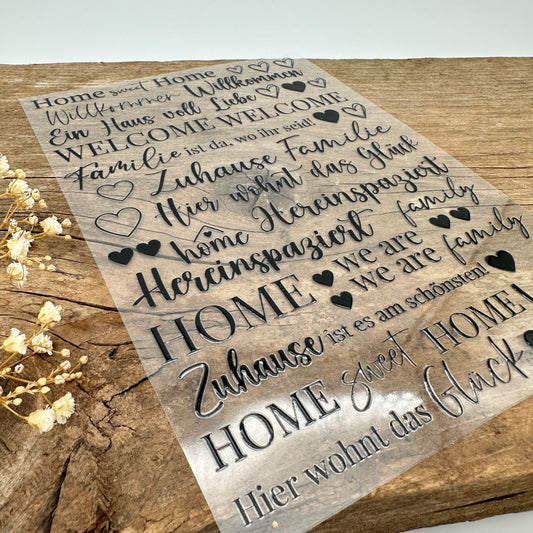 Home sweet Home
Willkommen Willkommen
Ein Haus voll Liebe
WELCOME WELCOME
Familie ist da, wo ihr seid!
Zuhause Familie
Hier wohnt das Glück
home Hereinspaziert
Hereinspaziert family
HOME we are family
we are
Zuhause ist es am schönsten!
HOME sweet HOME!
Hier wohnt das Glück